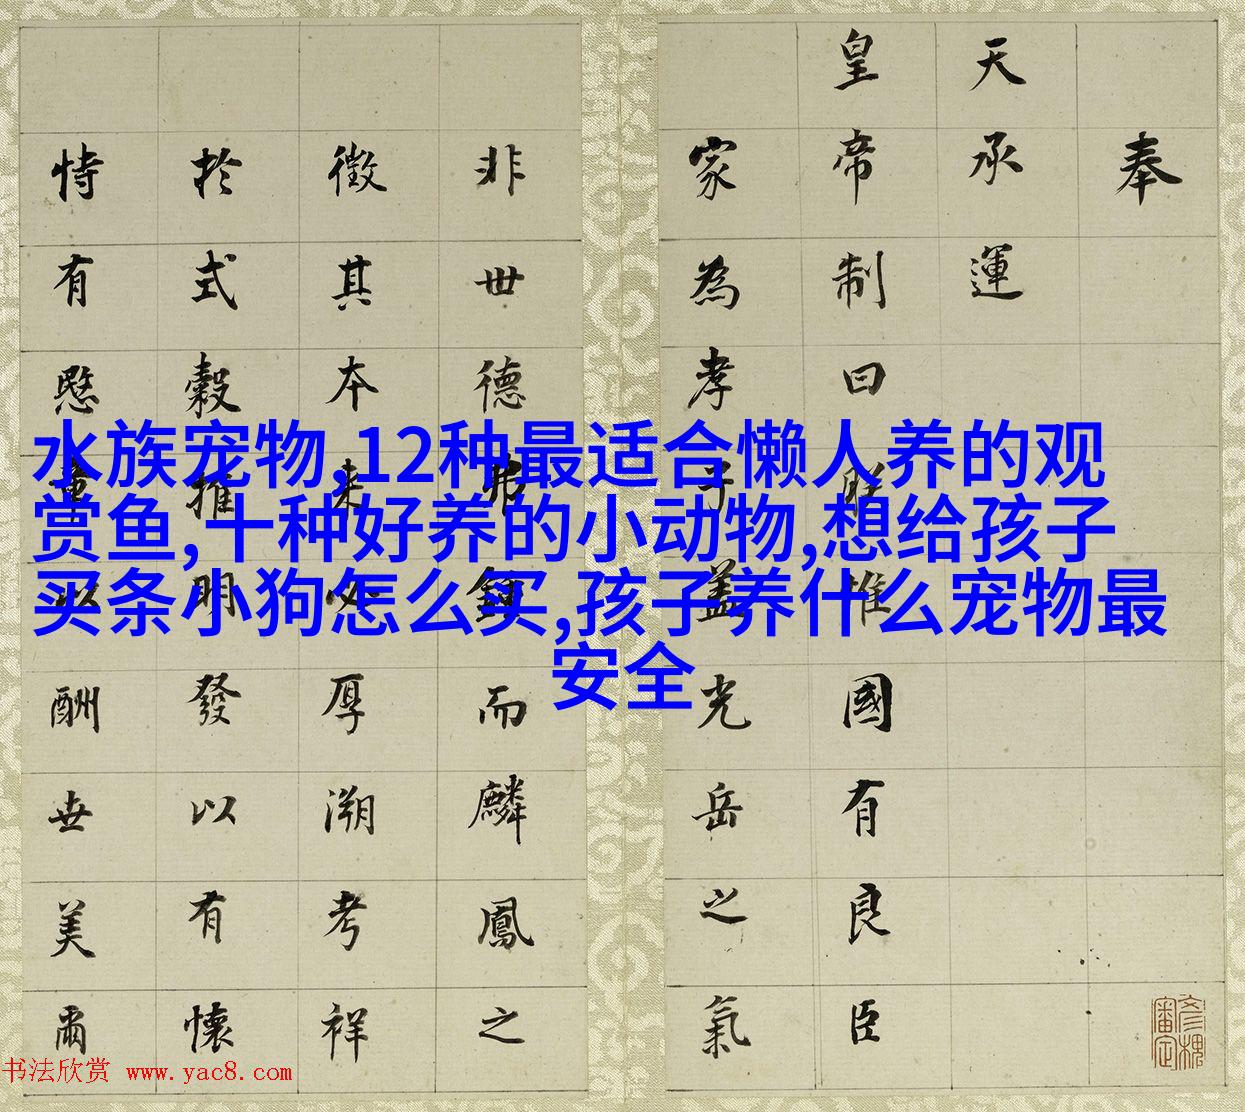 奉
天承運
皇帝制曰朕惟國有良臣
家為孝子蓋光岳之氣
非世德弗鍾而麟鳳之
徵其本來必厚溯考祥
於式穀推明發以有懷
恃有愍章以酬世美爾
水族宠物,12种最适合懒人养的观
赏鱼,十种好养的小动物,想给孩子
买条小狗怎么买,孩子养什么宠物最
安全
书法欣赏 www.yac8.com